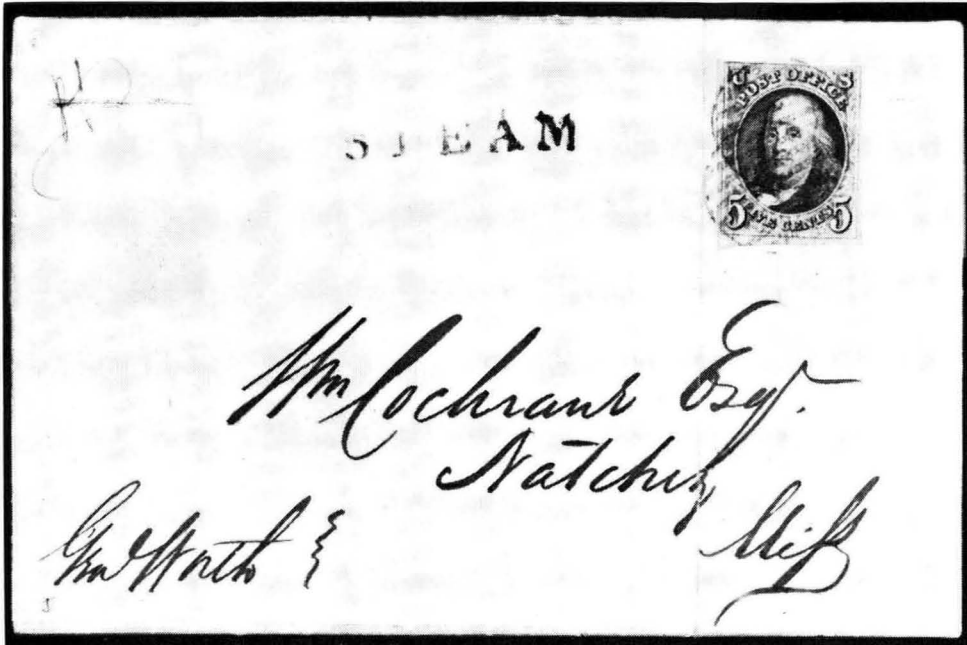 STEAM
U S
POST OFFICE
5 FIVE CENTS 5
Wm Cochrane Esqr.
Natchez
Miss
Genl Worth